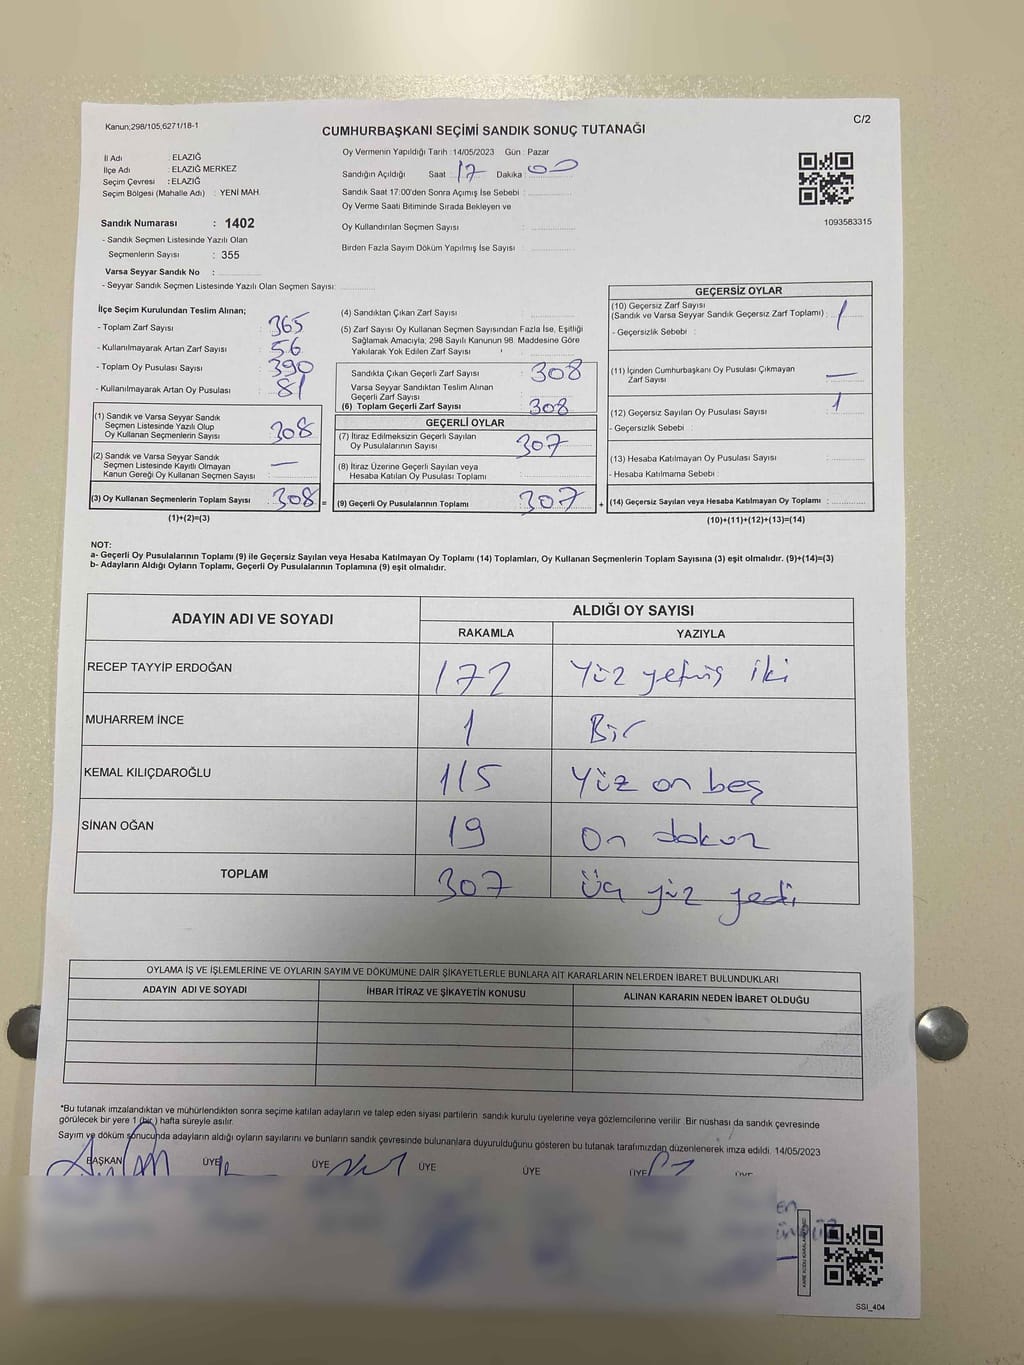 Kanun;298/105,6271/18-1
C/2
CUMHURBAŞKANI SEÇİMİ SANDIK SONUÇ TUTANAĞI
İl Adı : ELAZIĞ
İlçe Adı : ELAZIĞ MERKEZ
Seçim Çevresi : ELAZIĞ
Seçim Bölgesi (Mahalle Adı) : YENİ MAH.
Oy Vermenin Yapıldığı Tarih : 14/05/2023 Gün : Pazar
Sandığın Açıldığı Saat : 17 Dakika : 00
Sandık Saat 17:00'den Sonra Açımış İse Sebebi :
Oy Verme Saati Bitiminde Sırada Bekleyen ve
Oy Kullandırılan Seçmen Sayısı :
Birden Fazla Sayım Döküm Yapılmış İse Sayısı :
1093583315
Sandık Numarası : 1402
- Sandık Seçmen Listesinde Yazılı Olan
Seçmenlerin Sayısı : 355
Varsa Seyyar Sandık No :
- Seyyar Sandık Seçmen Listesinde Yazılı Olan Seçmen Sayısı:
İlçe Seçim Kurulundan Teslim Alınan;
- Toplam Zarf Sayısı : 365
- Kullanılmayarak Artan Zarf Sayısı : 56
- Toplam Oy Pusulası Sayısı : 390
- Kullanılmayarak Artan Oy Pusulası : 81
(1) Sandık ve Varsa Seyyar Sandık
Seçmen Listesinde Yazılı Olup
Oy Kullanan Seçmenlerin Sayısı : 308
(2) Sandık ve Varsa Seyyar Sandık
Seçmen Listesinde Kayıtlı Olmayan
Kanun Gereği Oy Kullanan Seçmen Sayısı : —
(3) Oy Kullanan Seçmenlerin Toplam Sayısı : 308 =
(1)+(2)=(3)
(4) Sandıktan Çıkan Zarf Sayısı :
(5) Zarf Sayısı Oy Kullanan Seçmen Sayısından Fazla İse, Eşitliği
Sağlamak Amacıyla; 298 Sayılı Kanunun 98. Maddesine Göre
Yakılarak Yok Edilen Zarf Sayısı :
Sandıkta Çıkan Geçerli Zarf Sayısı : 308
Varsa Seyyar Sandıktan Teslim Alınan
Geçerli Zarf Sayısı :
(6) Toplam Geçerli Zarf Sayısı : 308
GEÇERLİ OYLAR
(7) İtiraz Edilmeksizin Geçerli Sayılan
Oy Pusulalarının Sayısı : 307
(8) İtiraz Üzerine Geçerli Sayılan veya
Hesaba Katılan Oy Pusulası Toplamı :
(9) Geçerli Oy Pusulalarının Toplamı : 307 +
GEÇERSİZ OYLAR
(10) Geçersiz Zarf Sayısı
(Sandık ve Varsa Seyyar Sandık Geçersiz Zarf Toplamı) : 1
- Geçersizlik Sebebi :
(11) İçinden Cumhurbaşkanı Oy Pusulası Çıkmayan
Zarf Sayısı : —
(12) Geçersiz Sayılan Oy Pusulası Sayısı : 1
- Geçersizlik Sebebi :
(13) Hesaba Katılmayan Oy Pusulası Sayısı :
- Hesaba Katılmama Sebebi :
(14) Geçersiz Sayılan veya Hesaba Katılmayan Oy Toplamı :
(10)+(11)+(12)+(13)=(14)
NOT:
a- Geçerli Oy Pusulalarının Toplamı (9) ile Geçersiz Sayılan veya Hesaba Katılmayan Oy Toplamı (14) Toplamları, Oy Kullanan Seçmenlerin Toplam Sayısına (3) eşit olmalıdır. (9)+(14)=(3)
b- Adayların Aldığı Oyların Toplamı, Geçerli Oy Pusulalarının Toplamına (9) eşit olmalıdır.
ADAYIN ADI VE SOYADI
ALDIĞI OY SAYISI
RAKAMLA YAZIYLA
RECEP TAYYİP ERDOĞAN 172 Yüz yetmiş iki
MUHARREM İNCE 1 Bir
KEMAL KILIÇDAROĞLU 115 Yüz on beş
SİNAN OĞAN 19 On dokuz
TOPLAM 307 üç yüz yedi
OYLAMA İŞ VE İŞLEMLERİNE VE OYLARIN SAYIM VE DÖKÜMÜNE DAİR ŞİKAYETLERLE BUNLARA AİT KARARLARIN NELERDEN İBARET BULUNDUKLARI
ADAYIN ADI VE SOYADI İHBAR İTİRAZ VE ŞİKAYETİN KONUSU ALINAN KARARIN NEDEN İBARET OLDUĞU
*Bu tutanak imzalandıktan ve mühürlendikten sonra seçime katılan adayların ve talep eden siyasi partilerin sandık kurulu üyelerine veya gözlemcilerine verilir. Bir nüshası da sandık çevresinde
görülecek bir yere 1 (bir) hafta süreyle asılır.
Sayım ve döküm sonucunda adayların aldığı oyların sayılarını ve bunların sandık çevresinde bulunanlara duyurulduğunu gösteren bu tutanak tarafımızdan düzenlenerek imza edildi. 14/05/2023
BAŞKAN ÜYE ÜYE ÜYE ÜYE ÜYE ÜYE
SSI_404